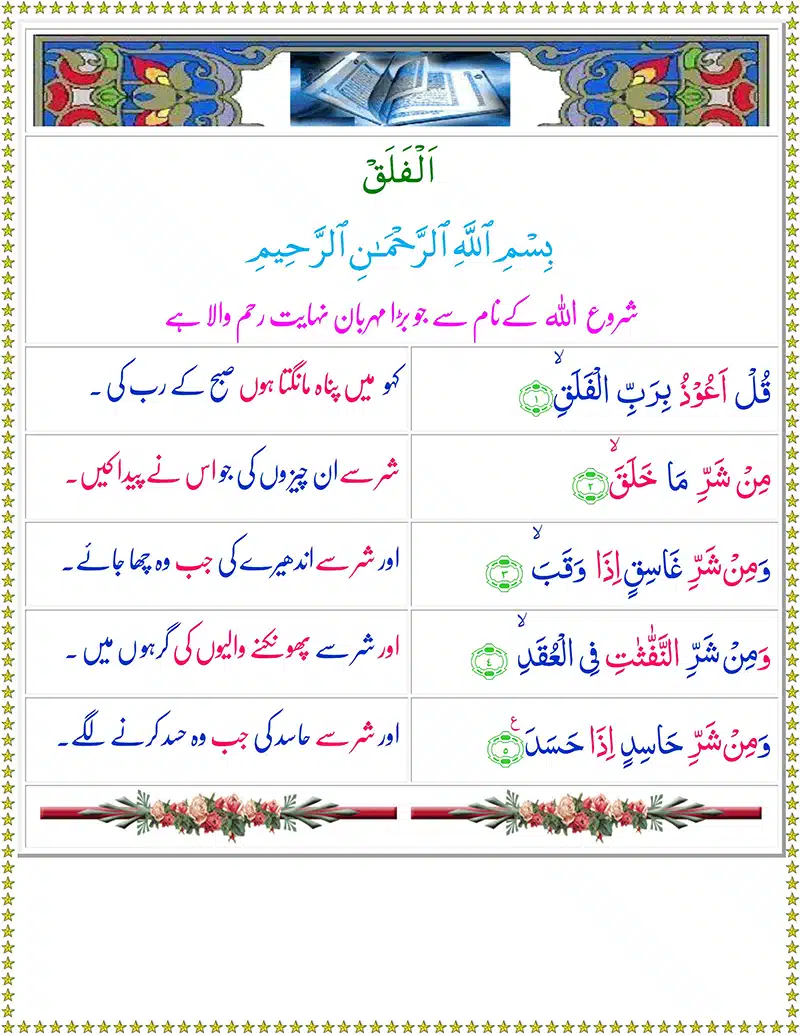 اَلْفَلَقْ
بِسْمِ ٱللَّهِ ٱلرَّحْمَـٰنِ ٱلرَّحِيمِ
شروع اللہ کے نام سے جو بڑا مہربان نہایت رحم والا ہے
قُلْ اَعُوْذُ بِرَبِّ الْفَلَقِۙ ۱
کہو میں پناہ مانگتا ہوں صبح کے رب کی ۔
مِنْ شَرِّ مَا خَلَقَۙ ۲
شر سے ان چیزوں کی جو اس نے پیدا کیں ۔
وَمِنْ شَرِّ غَاسِقٍ اِذَا وَقَبَۙ ۳
اور شر سے اندھیرے کی جب وہ چھا جائے ۔
وَمِنْ شَرِّ النَّفّٰثٰتِ فِى الْعُقَدِۙ ٤
اور شر سے پھونکنے والیوں کی گرہوں میں ۔
وَمِنْ شَرِّ حَاسِدٍ اِذَا حَسَدَ ع ۵
اور شر سے حاسد کی جب وہ حسد کرنے لگے ۔